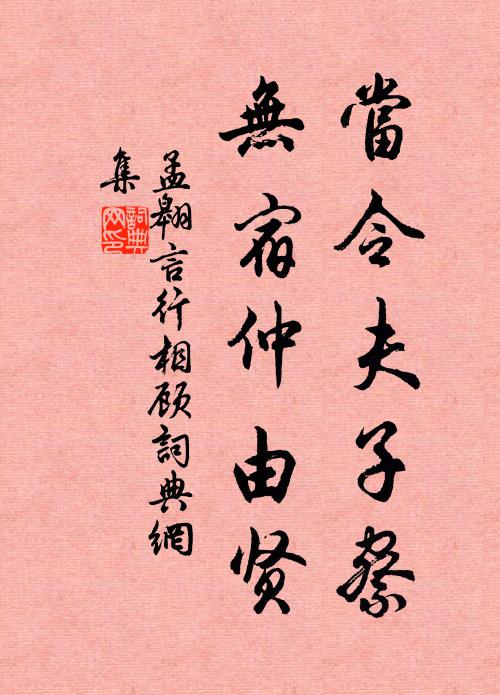 當令夫子察
無宿仲由贤
孟翱言行相顾詞典網
集
詞典
网印